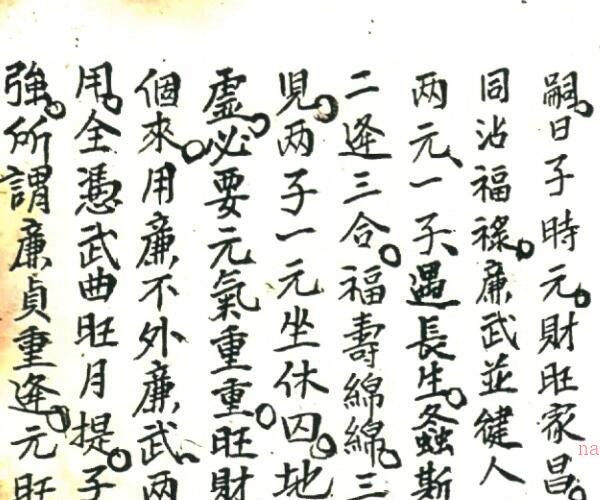 嗣。日子時元。財旺家昌。
同沾福祿。廉武並健人
两元、一子、遇長生。螽斯
二逢三合。福壽綿綿。三
見。两子一元坐休囚。地
虛。必要元氣重重。旺財
個來。用廉不外廉武、两
用。全憑武曲旺月提。子
強。所謂廉貞重逢。元旺
na